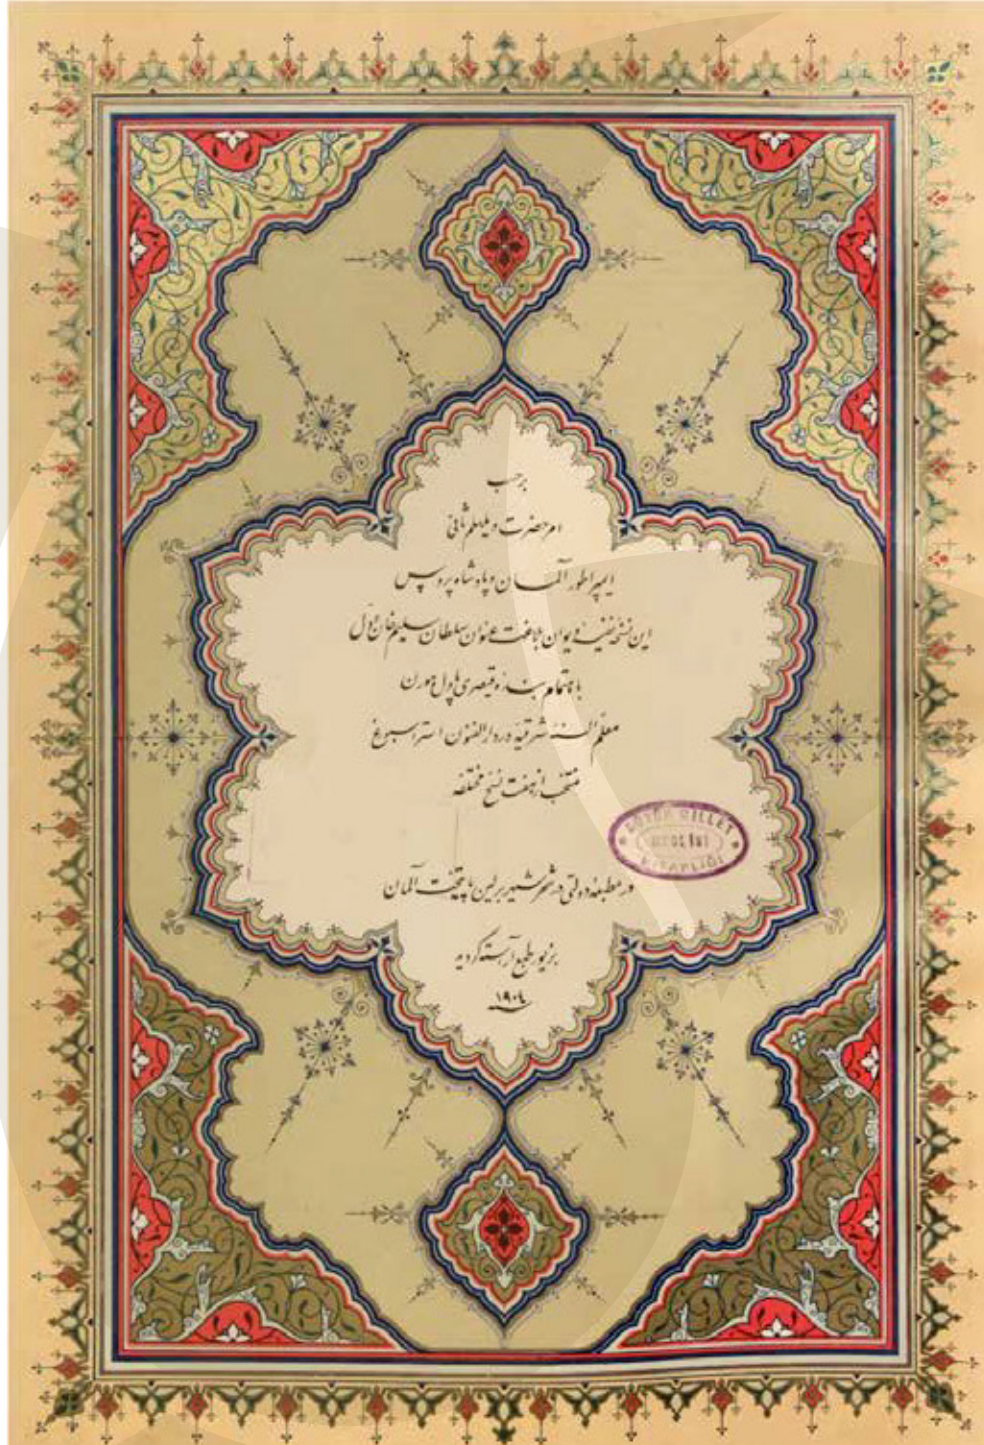 برحسب
امر حضرت ویلهلم ثانی
ایمپراطور آلمان و پادشاه پروس
این نسخه نفیسه دیوان بلاغت عنوان سلطان سلیم خان اول
باهتمام بنده قیصری پاول هورن
معلم السنه شرقیه در دار الفنون استراسبورغ
منتخب از هفت نسخ مختلفه
BÖYÜK MİLLET
MECLİSİ
KİTAPLIĞI
در مطبعه دولتی در شهر شهیر برلین پایتخت آلمان
بزیور طبع آراسته گردید
سنه ۱۹۰٤